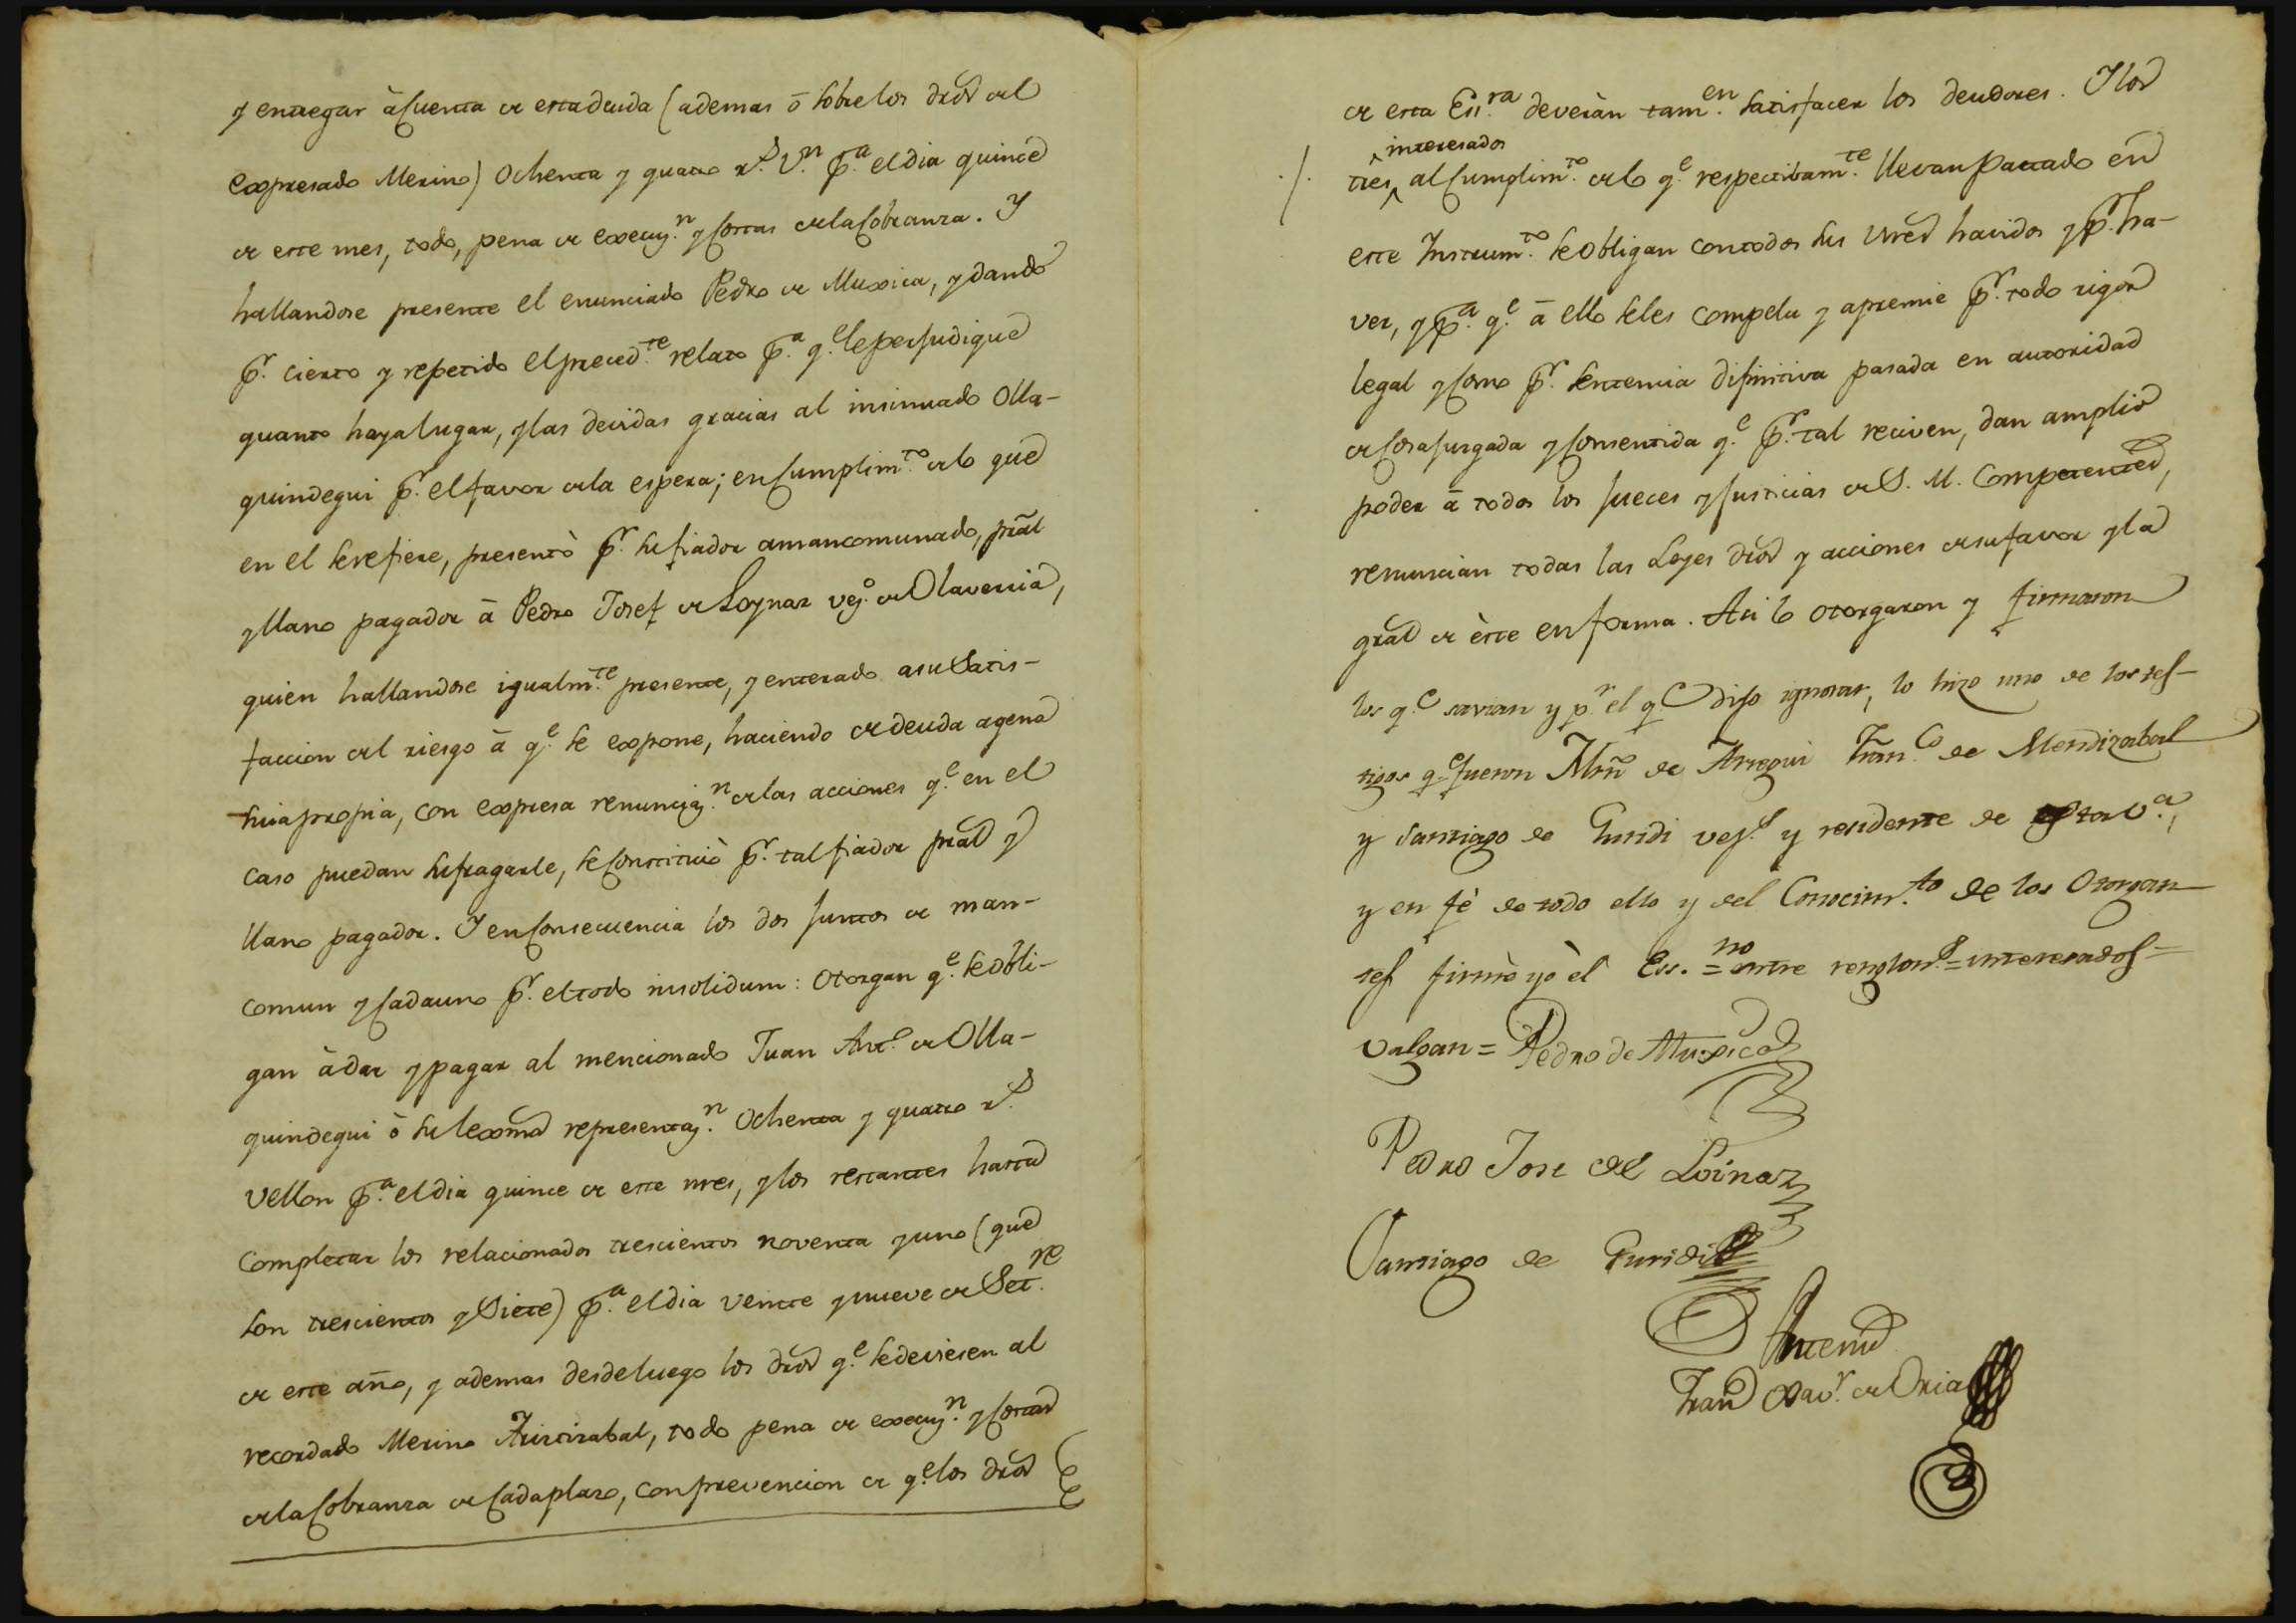 y entregar à cuenta de esta deuda (ademas ō sobre los dr̃os del
expresado Merino) Ochenta y quatro r.s V.n p.a el dia quince
de este mes, todo, pena de execuz.n y costas de la Cobranza. Y
hallandose presente el enunciado Pedro de Muxica, y dando
p.r cierto y repetido el preced.te relato p.a q.e le perjudique
quanto haya lugar, y las devidas gracias al insinuado Olla-
quindegui p.r el favor de la espera; en Cumplim.to de lo que
en el se refiere, presentò p.r su fiador amancomunado, prãl
y llano pagador ā Pedro Josef de Loynaz vez.o de Olaverria,
quien hallandose igualm.te presente, y enterado a su Satis-
faccion del riesgo ā q.e se expone, haciendo de deuda agena
suia propia, con expresa renunciaz.n de las acciones q.e en el
caso puedan sufragarle, se Constituiò p.r tal fiador prãl y
llano pagador. Y en Consecuencia los dos juntos de man-
comun y Cada uno p.r el todo insolidum: Otorgan q.e se obli-
gan à dar y pagar al mencionado Juan Ant.o de Olla-
quindegui ò su lexma representaz.n Ochenta y quatro r.s
Vellon p.a el dia quince de este mes, y los restantes hasta
Completar los relacionados trescientos noventa y uno (que
son trescientos y Siete) p.a el dia veinte y nueve de Set.re
de este año, y ademas desde luego los dr̃os q.e se deviesen al
recordado Merino Aristizabal, todo pena de execuz.n y costas
de la Cobranza de Cada plazo, con prevencion de q.e los dr̃os
de esta Ess.ra deveràn tam.en satisfacer los deudores. Y los
interesados
tres al Cumplim.to de lo q.e respectibam.te llevan pactado en
este Instrum.to se obligan con todos sus vnes havidos y p.r ha-
ver, y p.a q.e ā ello se les compela y apremie p.r todo rigor
legal y como p.r sentencia difinitiva pasada en autoridad
de Cosa juzgada y Consentida q.e p.r tal reciven, dan amplio
poder ā todos los Jueces y Justicias de S. M. Competentes,
renuncian todas las Leyes dr̃os y acciones de su favor y la
gral de èste en forma. Asi lo otorgaron y firmaron
los q.e savian y p.r el q.e dijo ignorar, lo hizo uno de los tes-
tigos q.e fueron Mrñ de Arregui Fran.co de Mendizabal
y Santiago de Guridi vez.s y residente de esta v.a,
y en fè de todo ello y del Conocim.to de los Otorgan-
tes firmè yò èl Ess.no = entre renglon.s = interesados =
valgan = Pedro de Muxica
Pedro Jose de Loinaz
Santiago de Guridi
Antemi
Fran Xav.r de Oria